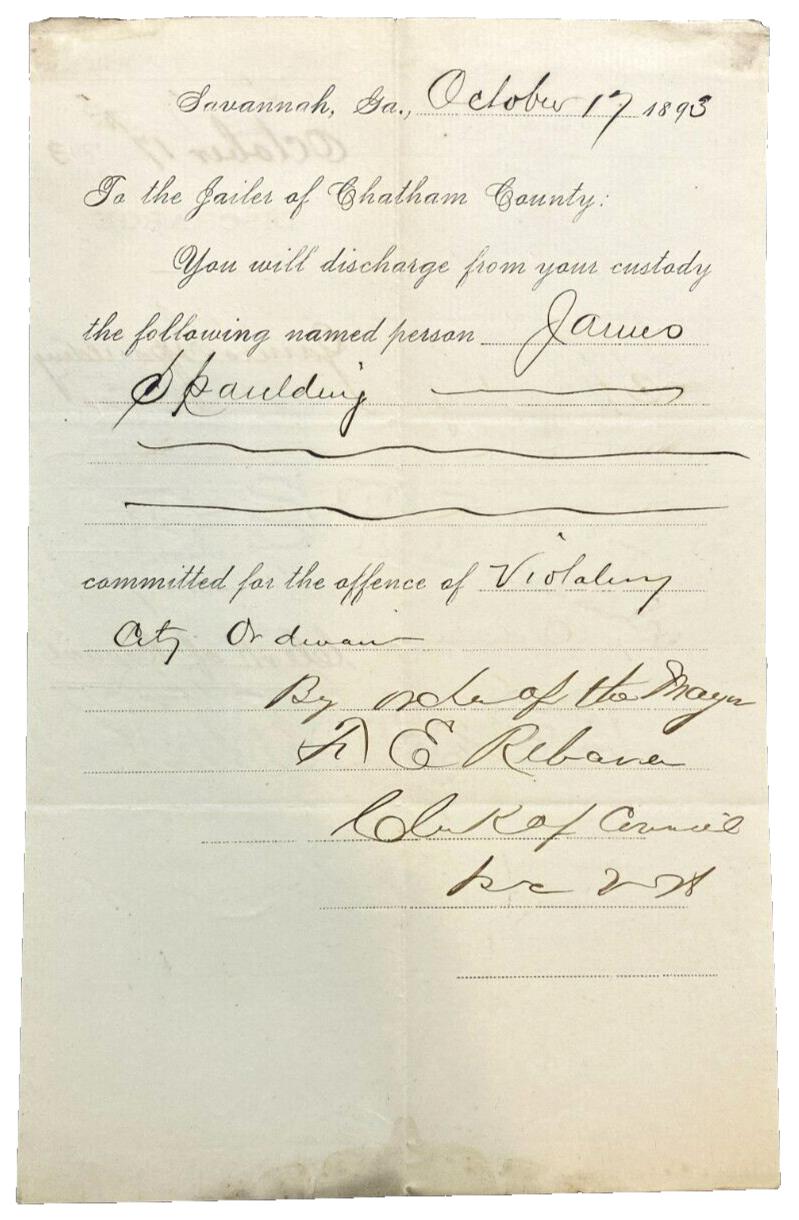 Savannah, Ga., October 17 1893
To the Jailer of Chatham County:
You will discharge from your custody
the following named person James
Spaulding
committed for the offence of Violating
City Ordinance
By order of the Mayor
F E Rebarer
Clerk of Council